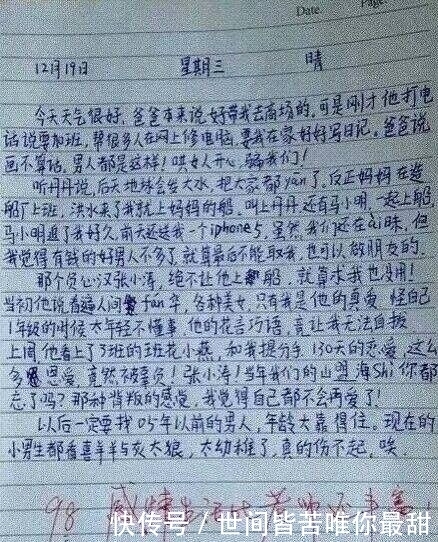 Date.
Page.
12月19日 星期三 晴
今天天气很好，爸爸本来说好带我去商场的，可是刚才他打电
话说要加班，帮很多人在网上修电脑，要我在家好好写日记。爸爸说
画不算话，男人都是这样！哄女人开心，骗我们！
听丹丹说，后天地球会发大水，把大家都yān了。反正妈妈在造
船厂上班，洪水来了我就上妈妈的船。叫上丹丹还有马小明一起上船，
马小明追了我好久，前天还送我一个iphone5，虽然我们还在ai昧，但
我觉得有钱的好男人不多了，就算最后不能取我，也可以做朋友的。
那个负心汉张小涛，绝不让他上船，就算求我也没用！
当初他说看遍人间fan华，各种美女，只有我是他的真爱，怪自己
1年级的时候太年轻不懂事，他的花言巧语，竟让我无法自拔
上周他看上了3班的班花小燕，和我提分手，130天的恋爱，这么
多恩爱，竟然被辜负！张小涛！当年我们的山盟海Shi你都
忘了吗？那种背叛的感觉，我觉得自己都不会再爱了！
以后一定要找05年以前的男人，年龄大靠得住。现在的
小男生都看喜羊羊与灰太狼，太幼稚了，真的伤不起，唉
98
快传号／世间皆苦唯你最甜